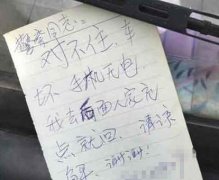 警察同志：
对不住，车
坏 手机无电
我去后面人家充
点就回。请谅
解。谢谢谢。